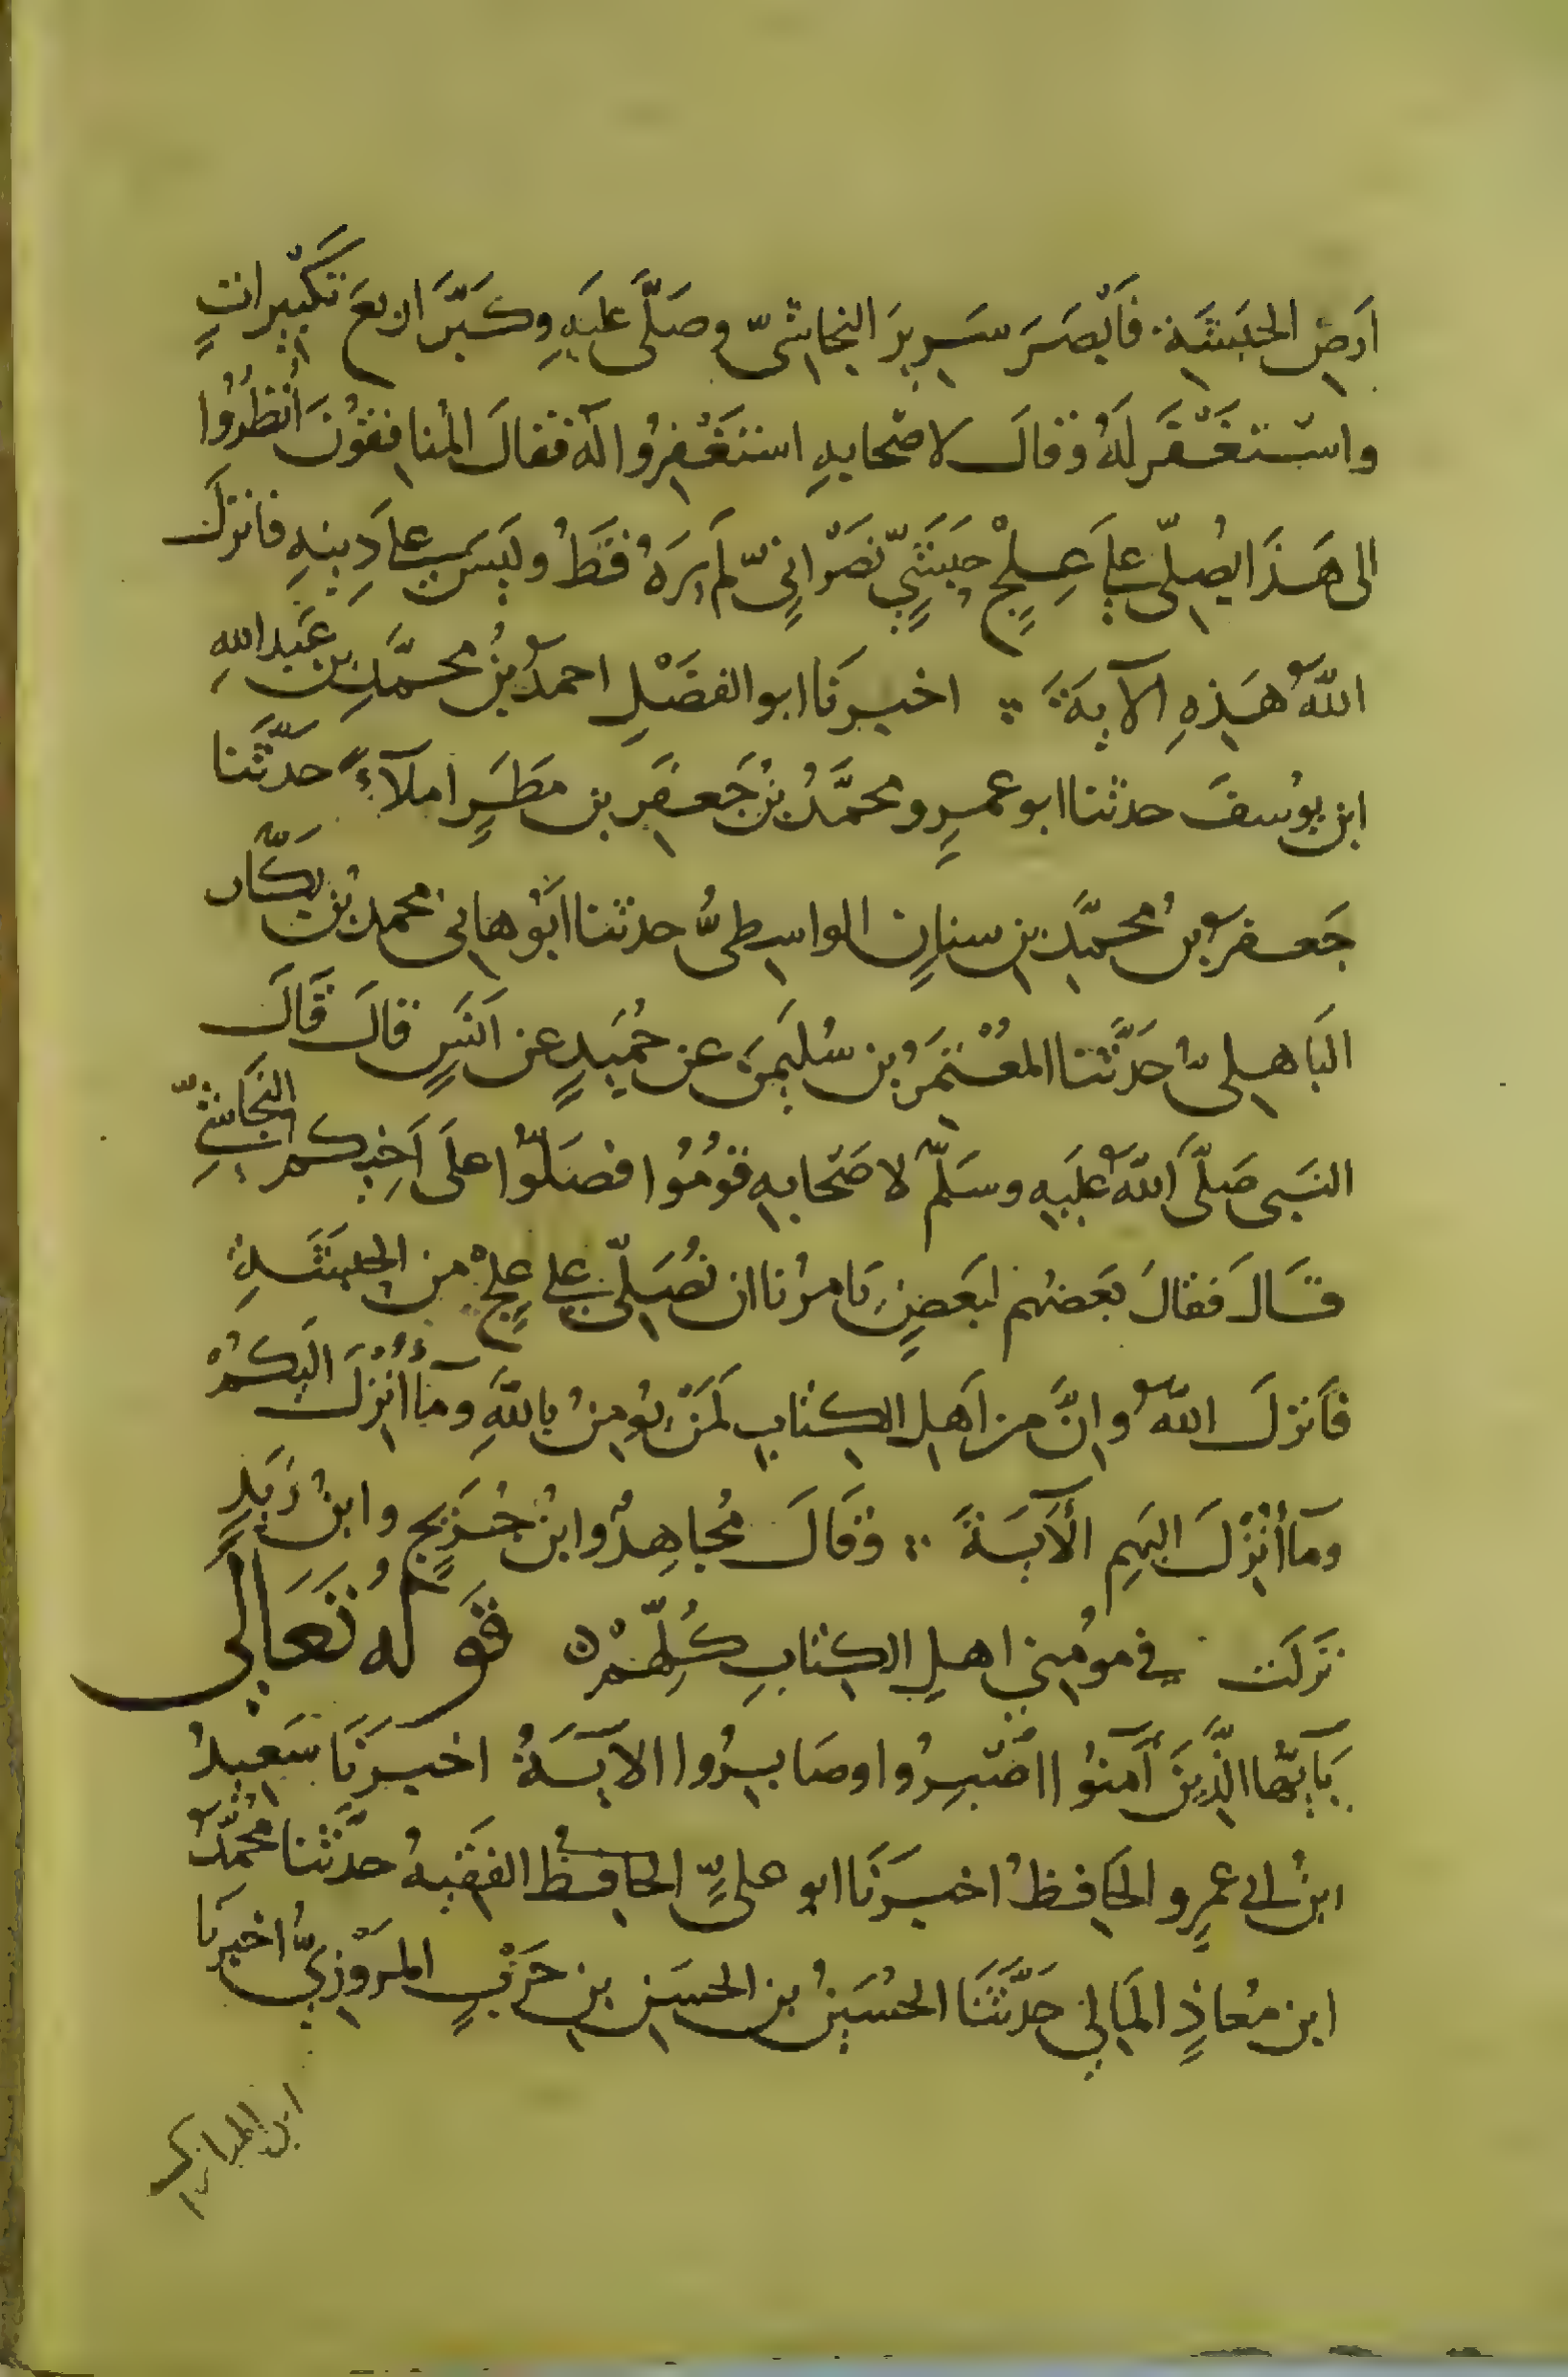 اَرضِ الحَبَشَةِ فَاَبْصَرَ سَرِيرَ النجاشىّ وصَلَّى عليَهِ وكَبَّرَ اربعَ تَكْبِيراتٍ
واسْتَغْفَرَ لَهُ وَقالَ لاصْحابِهِ استَغْفِرُوا لَه فقالَ المُنافِقُونَ اُنْظُرُوا
الى هَذَا يُصلّى علىَ عِلْجٍ حَبَشِيٍّ نَصْرَانِيٍّ لم يَرَهُ قَطُّ ولَيسَ علَى دِينِهِ فانزلَ
اللهُ هَذِهِ الآيَةَ ؞ اخبرَنَا ابو الفضْلِ احمدُ بنُ محمَّدِ بنِ عَبدِ اللهِ
ابنِ يوُسفَ حدثنا ابو عمرٍو محمَّدُ بنُ جَعفَرِ بنِ مَطَرٍ اِملآءً حدَّثَنا
جَعفرُ بنُ محمَّدِ بنِ سنانٍ الواسِطىُّ حدثنا اَبُو هانى محمد بنُ بكَّارٍ
البَاهِلىُّ حَدَّثَنا المعُتَمَرُ بن سُلَيمَنَ عن حُمَيدٍ عن اَنَسٍ قالَ قَالَ
النَبى صَلَّى اللهُ عَلَيهِ وسَلَّم لاصَحابهِ قوُمُوا فصَلُّوا علَى اَخِيكم النَجَاشِيّ
قَالَ فَقالَ بَعضهُم لبَعضٍ يَامرُنا ان نُصَلّىَ على عِلجٍ من الحبشَةِ
فَاَنزلَ اللهُ وَاِنَّ من اَهلِ الكتابِ لَمَنْ يُومِنُ بِاللهِ ومَآ أُنْزِلَ اليكُمْ
ومَآ أُنْزِلَ اليهِم الآيَةَ ؞ وَقَالَ مُجاهِدُ وابنُ جُرَيجٍ وابنُ زَيدٍ
نزلَت فى مؤمِنِي اهلِ الكِتابِ كُلِّهمْ قَولهُ تَعَالَى
يَاَيُّها الذَّينَ آمَنوُا اصْبِرُوا وصَابِرُوا الايَةُ اخبرَنَا سَعِيدُ
ابنُ ابى عمرٍو الحَافِظُ اخبرَنَا ابو علىٍّ الحافظ الفَقيهُ حدَّثَنا مُحمَّدُ
ابن مُعاذٍ المَالِيني حَدَّثَنَا الحُسَينُ بن الحسَنِ بنِ حَرْبٍ المرَوْزىُّ اخبرنَا
ابن المبارك